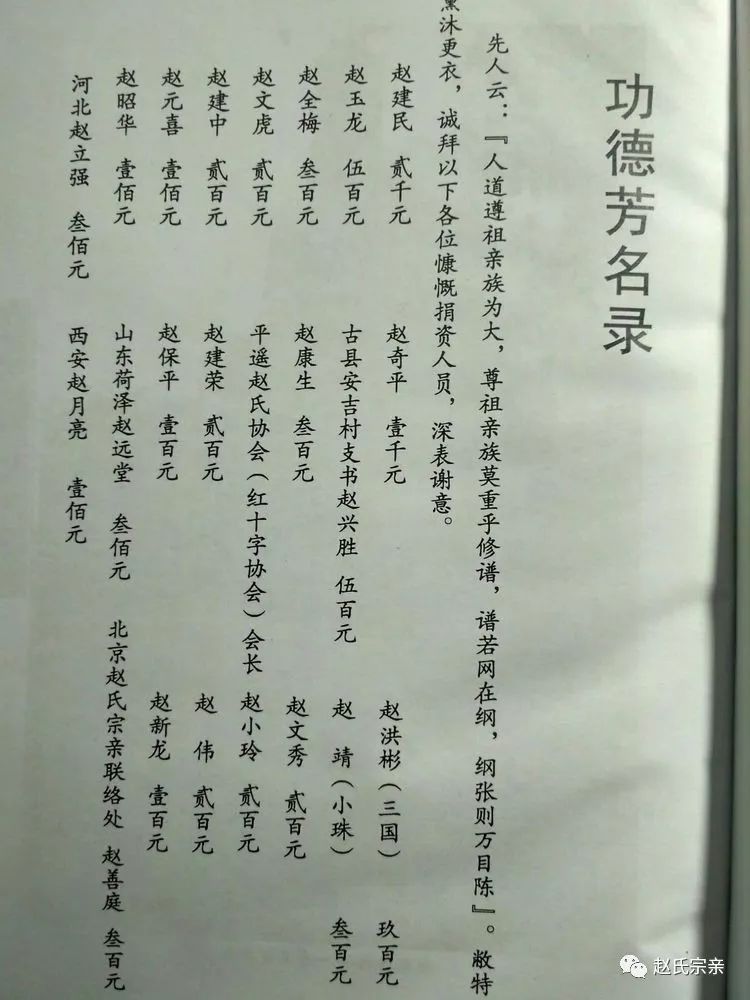 功德芳名录
先人云：『人道遵祖亲族为大，尊祖亲族莫重乎修谱，谱若网在纲，纲张则万目陈』。敝特
薰沐更衣，诚拜以下各位慷慨捐资人员，深表谢意。
赵建民 贰千元 赵奇平 壹千元 赵洪彬（三国） 玖百元
赵玉龙 伍百元 古县安吉村支书赵兴胜 伍百元 赵 靖（小珠） 叁百元
赵全梅 叁百元 赵康生 叁百元 赵文秀 贰百元
赵文虎 贰百元 平遥赵氏协会（红十字协会）会长 赵小玲 贰百元
赵建中 贰百元 赵建荣 贰百元 赵 伟 贰百元
赵元喜 壹佰元 赵保平 壹百元 赵新龙 壹百元
赵昭华 壹佰元 山东荷泽赵远堂 叁佰元 北京赵氏宗亲联络处 赵善庭 叁百元
河北赵立强 叁佰元 西安赵月亮 壹佰元
赵氏宗亲